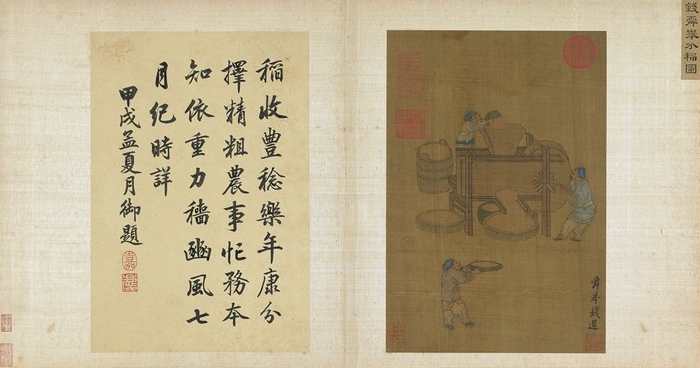 錢舜舉分稻圖
舜舉錢選
稻收豐稔樂年康分
擇精粗農事忙務本
知依重力穡豳風七
月紀時詳
甲戌孟夏月御題